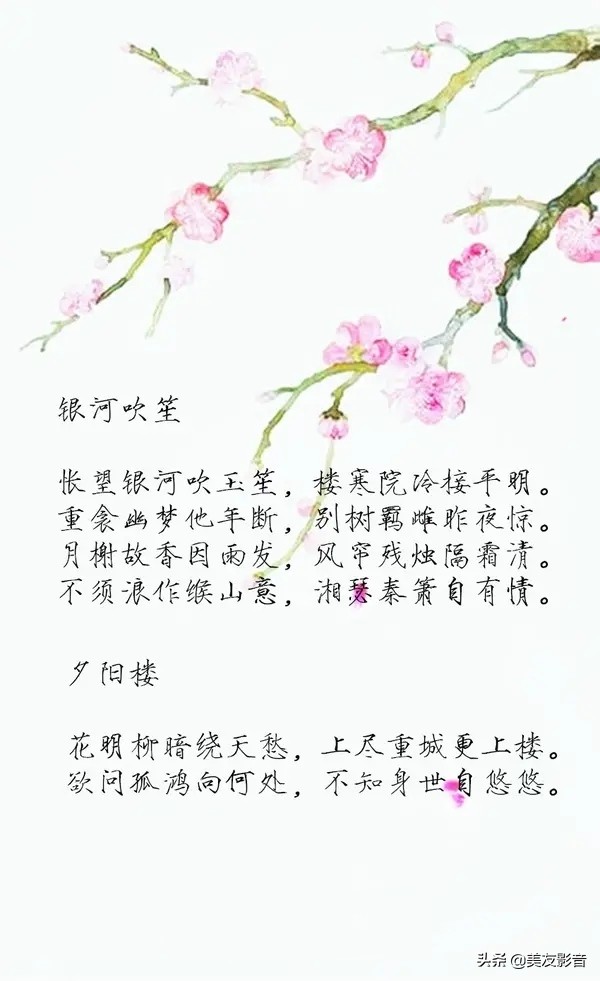 银河吹笙
怅望银河吹玉笙，楼寒院冷接平明。
重衾幽梦他年断，别树羁雌昨夜惊。
月榭故香因雨发，风帘残烛隔霜清。
不须浪作缑山意，湘瑟秦箫自有情。
夕阳楼
花明柳暗绕天愁，上尽重城更上楼。
欲问孤鸿向何处，不知身世自悠悠。
头条 @美友影音